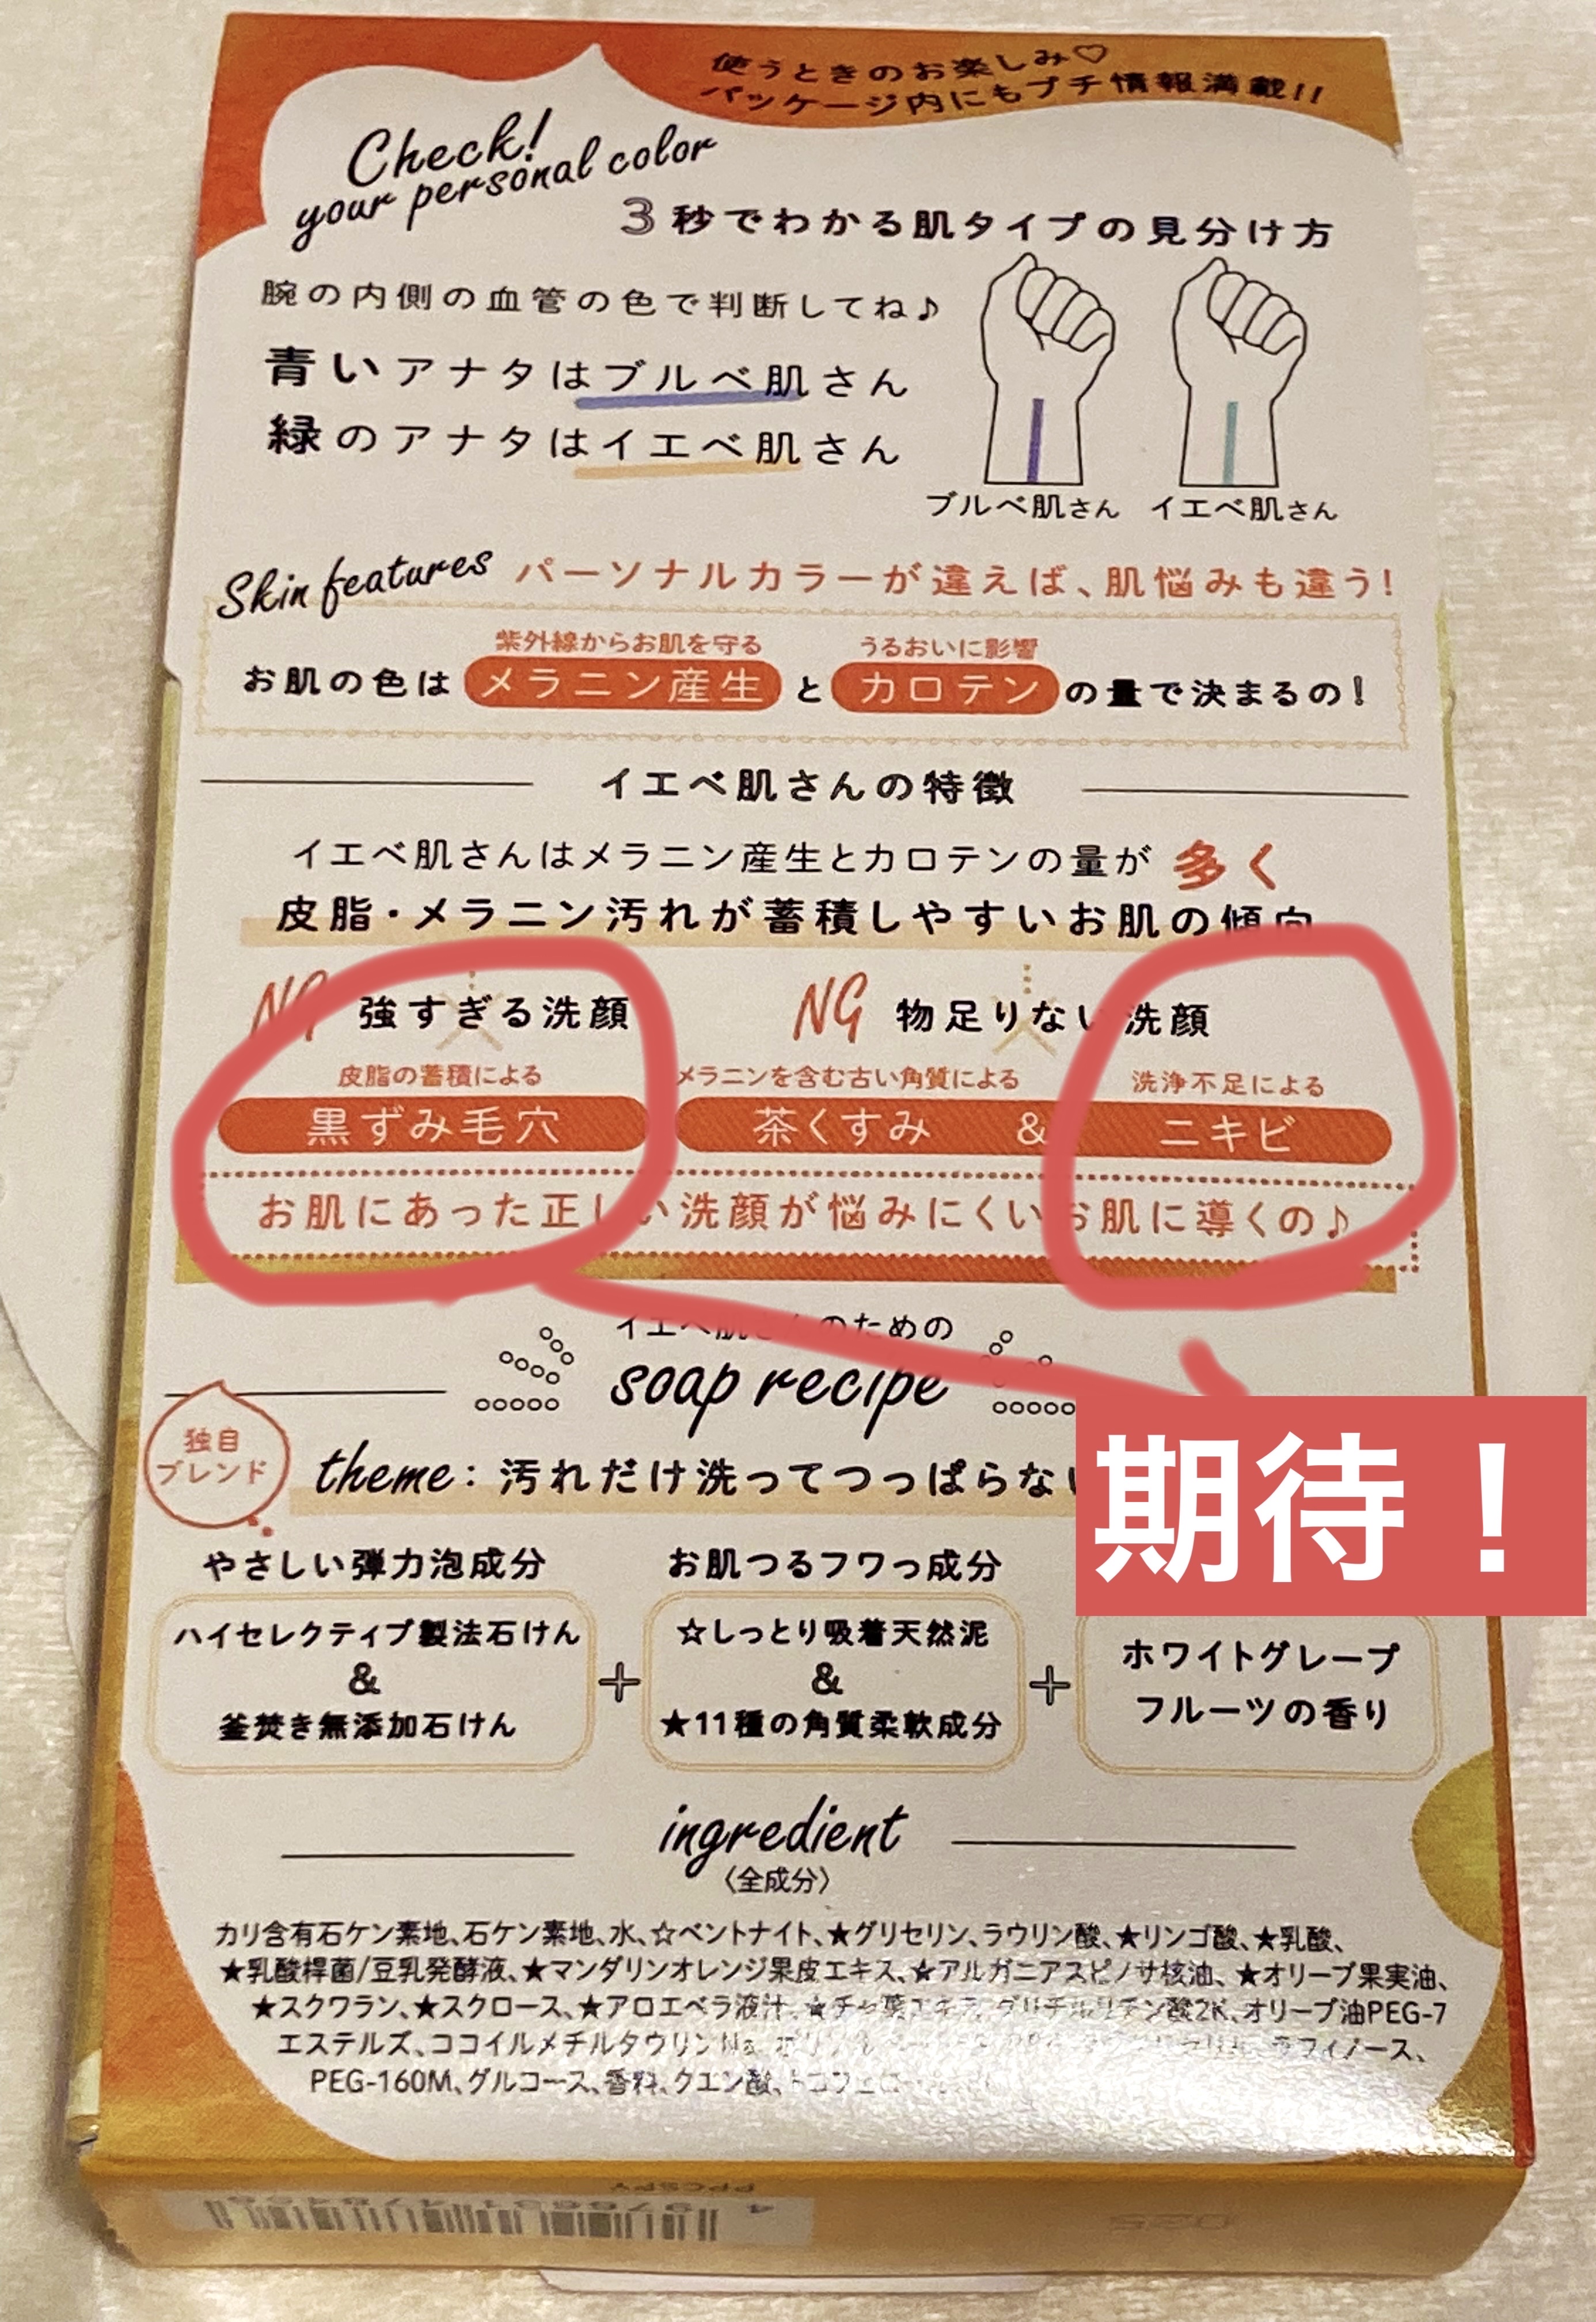 使うときのお楽しみ♡
パッケージ内にもプチ情報満載!!
Check!
your personal color
3秒でわかる肌タイプの見分け方
腕の内側の血管の色で判断してね♪
青いアナタはブルベ肌さん
緑のアナタはイエベ肌さん
ブルベ肌さん イエベ肌さん
Skin features パーソナルカラーが違えば、肌悩みも違う!
紫外線からお肌を守る うるおいに影響
お肌の色は メラニン産生 と カロテン の量で決まるの!
イエベ肌さんの特徴
イエベ肌さんはメラニン産生とカロテンの量が 多く
皮脂・メラニン汚れが蓄積しやすいお肌の傾向
NG 強すぎる洗顔 NG 物足りない洗顔
皮脂の蓄積による メラニンを含む古い角質による 洗浄不足による
黒ずみ毛穴 茶くすみ & ニキビ
お肌にあった正しい洗顔が悩みにくいお肌に導くの♪
イエベ肌さんのための
soap recipe
期待！
独自
ブレンド
theme: 汚れだけ洗ってつっぱらない
やさしい弾力泡成分 お肌つるフワっ成分
ハイセレクティブ製法石けん
&
釜焚き無添加石けん
+
☆しっとり吸着天然泥
&
★11種の角質柔軟成分
+
ホワイトグレープ
フルーツの香り
ingredient
〈全成分〉
カリ含有石ケン素地、石ケン素地、水、☆ベントナイト、★グリセリン、ラウリン酸、★リンゴ酸、★乳酸、
★乳酸桿菌/豆乳発酵液、★マンダリンオレンジ果皮エキス、★アルガニアスピノサ核油、★オリーブ果実油、
★スクワラン、★スクロース、★アロエベラ液汁、★チャ葉エキス、グリチルリチン酸2K、オリーブ油PEG-7
エステルズ、ココイルメチルタウリンNa、ラフィノース、
PEG-160M、グルコース、香料、クエン酸、